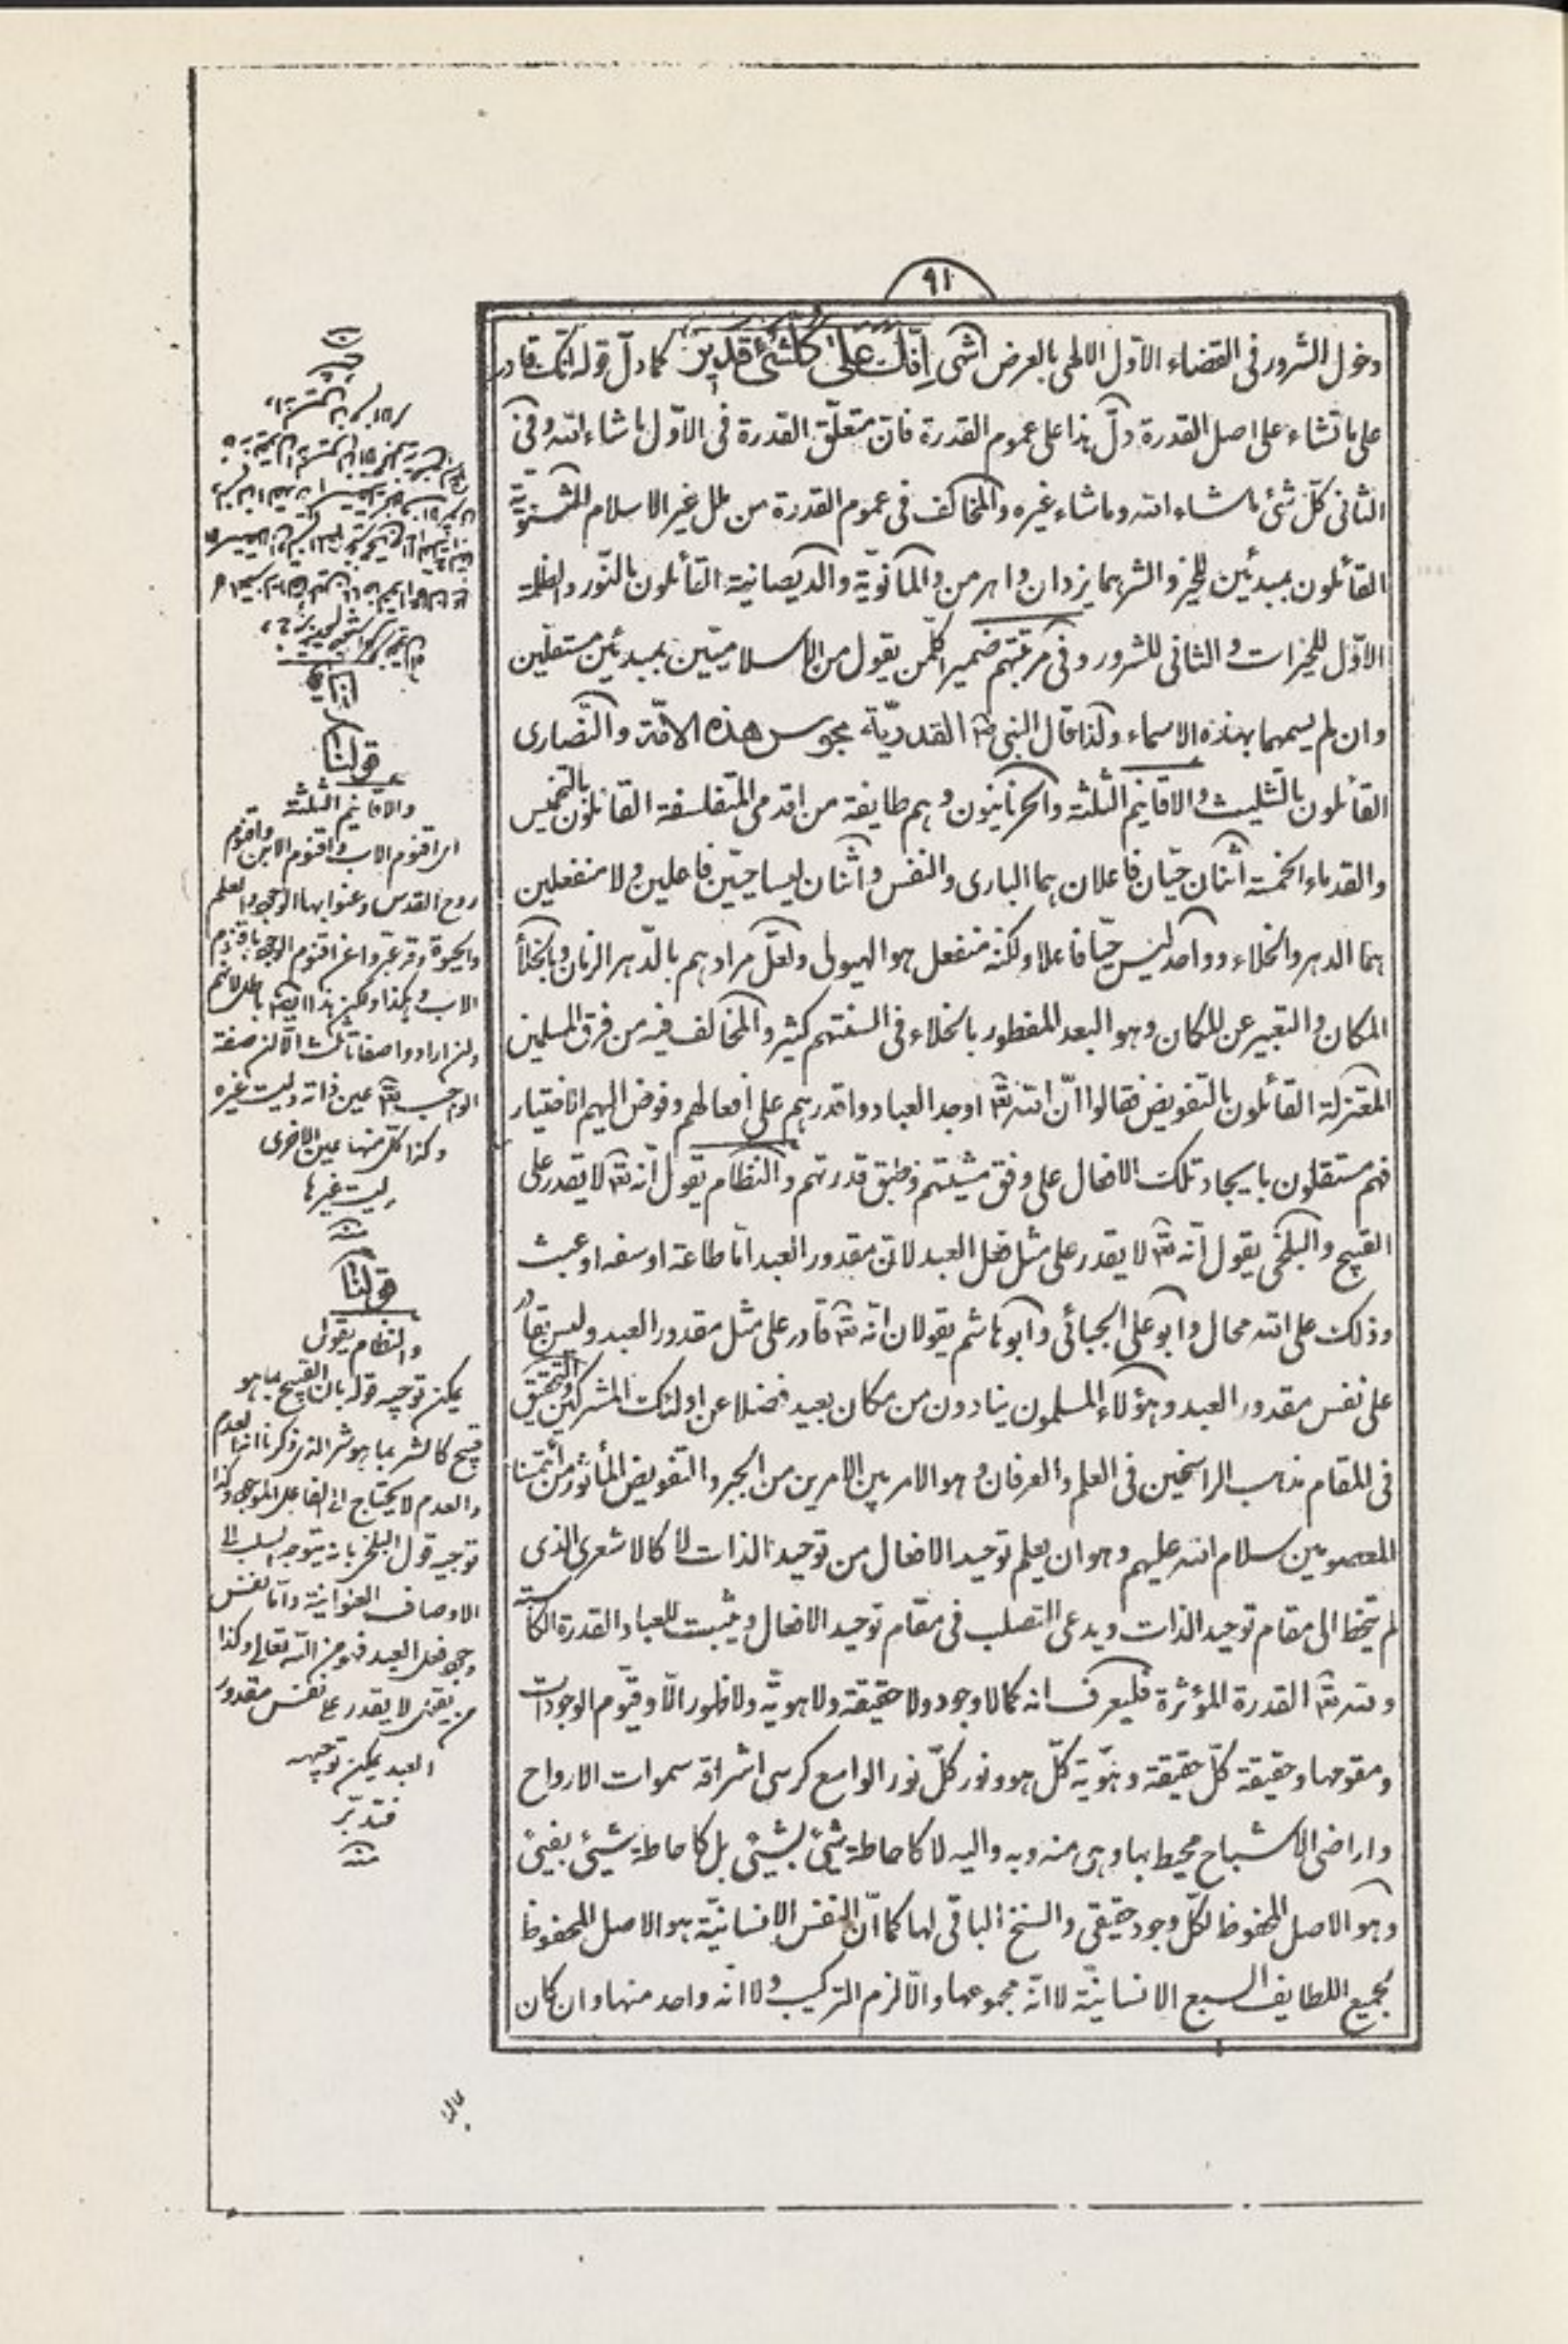 ٩١
دخول الشرور فى القضاء الاول الالهى بالعرض انتهى اِنَّكَ عَلىٰ كُلِّ شَىْءٍ قَدِيرٌ كما دلّ قوله انك قادر
على ما تشاء على اصل القدرة دلّ هذا على عموم القدرة فان متعلّق القدرة فى الاوّل ما شاء الله وفى
الثانى كلّ شئ ما شاء الله وما شاء غيره والمخالف فى عموم القدرة من ملل غير الاسلام الثنويّة
القائلون بمبدئين للخير والشر هما يزدان واهرمن والمانويّة والديصانية القائلون بالنّور والظلمة
الاوّل للخيرات والثانى للشرور وفى مرتبتهم ضمير كلّ من يقول من الاسلاميّين بمبدئين مستقلّين
وان لم يسمهما بهذه الاسماء ولذا قال النبى ص القدريّة مجوس هذه الامّة والنّصارى
القائلون بالتثليث والاقانيم الثلثة والحرنانيون وهم طايفة من اقدمى المتفلسفة القائلون بالتخميس
والقدماء الخمسة اثنان حيّان فاعلان هما البارى والنفس واثنان ليسا حيّين فاعلين ولا منفعلين
هما الدهر والخلاء وواحد ليس حيّا فاعلا ولكنه منفعل هو الهيولى ولعلّ مرادهم بالدّهر الزمان وبالخلأ
المكان والتعبير عن المكان وهو البعد المفطور بالخلاء فى السنتهم كثير والمخالف فيه من فرق المسلمين
المعتزلة القائلون بالتفويض فقالوا انّ الله تع اوجد العباد واقدرهم على افعالهم وفوض اليهم الاختيار
فهم مستقلون بايجاد تلك الافعال على وفق مشيتهم وطبق قدرتهم والنظام يقول انّه تع لا يقدر على
القبيح والبلخى يقول انّه تع لا يقدر على مثل فعل العبد لان مقدور العبد امّا طاعة او سفه او عبث
وذلك على الله محال وابو على الجبائى وابو هاشم يقولان انّه تع قادر على مثل مقدور العبد وليس بقادر
على نفس مقدور العبد وهؤلاء المسلمون ينادون من مكان بعيد فضلا عن اولئك المشركين والتحقيق
فى المقام مذهب الراسخين فى العلم والعرفان وهو الامر بين الامرين من الجبر والتفويض المأثور من ائمتنا
المعصومين سلام الله عليهم وهو ان يعلم توحيد الافعال من توحيد الذات لا كالاشعرى الذى
لم يتخط الى مقام توحيد الذات ويدعى التصلب فى مقام توحيد الافعال ويثبت للعباد القدرة الكاسبة
ولله تع القدرة المؤثرة فليعرف انه كما لا وجود ولا حقيقة ولا هويّة ولا ظهور الّا وقيّوم الوجودات
ومقومها وحقيقة كلّ حقيقة وهويّة كلّ هو ونور كلّ نور الواسع كرسى اشراقه سموات الارواح
واراضى الاشباح محيط بها وهى منه وبه واليه لا كاحاطة شئ بشئ بل كاحاطة شيئ بفيئ
وهو الاصل المحفوظ لكلّ وجود حقيقى والسنخ الباقى لها كما انّ النفس الانسانيّة هو الاصل المحفوظ
لجميع اللطايف السبع الانسانيّة لا انّه مجموعها والّا لزم التركيب ولا انّه واحد منها وان كان
قولنا
والاقانيم الثلثة
اى اقنوم الاب واقنوم الابن واقنوم
روح القدس وعنوا بها الوجود والعلم
والحيوة وقد عبّروا عن اقنوم الوجود باقنوم
الاب وهكذا ولكن هذا ايضا باطل لانهم
وان ارادوا صفاتا ثلث الّا ان صفة
الواجب تع عين ذاته وليست غيره
وكذا كلّ منها عين الاخرى
وليست غيرها
منه
قولنا
والنظام يقول
يمكن توجيه قوله بان القبيح بما هو
قبيح كالشر بما هو شر الذى ذكرنا انه العدم
والعدم لا يحتاج الى الفاعل الموجود وكذا
توجيه قول البلخى بانه يتوجه السلب الى
الاوصاف العنوانية وامّا نفس
وجود فعل العبد فهو من الله تعالى وكذا
من يقول لا يقدر على نفس مقدور
العبد يمكن توجيهه
فتدبّر
منه